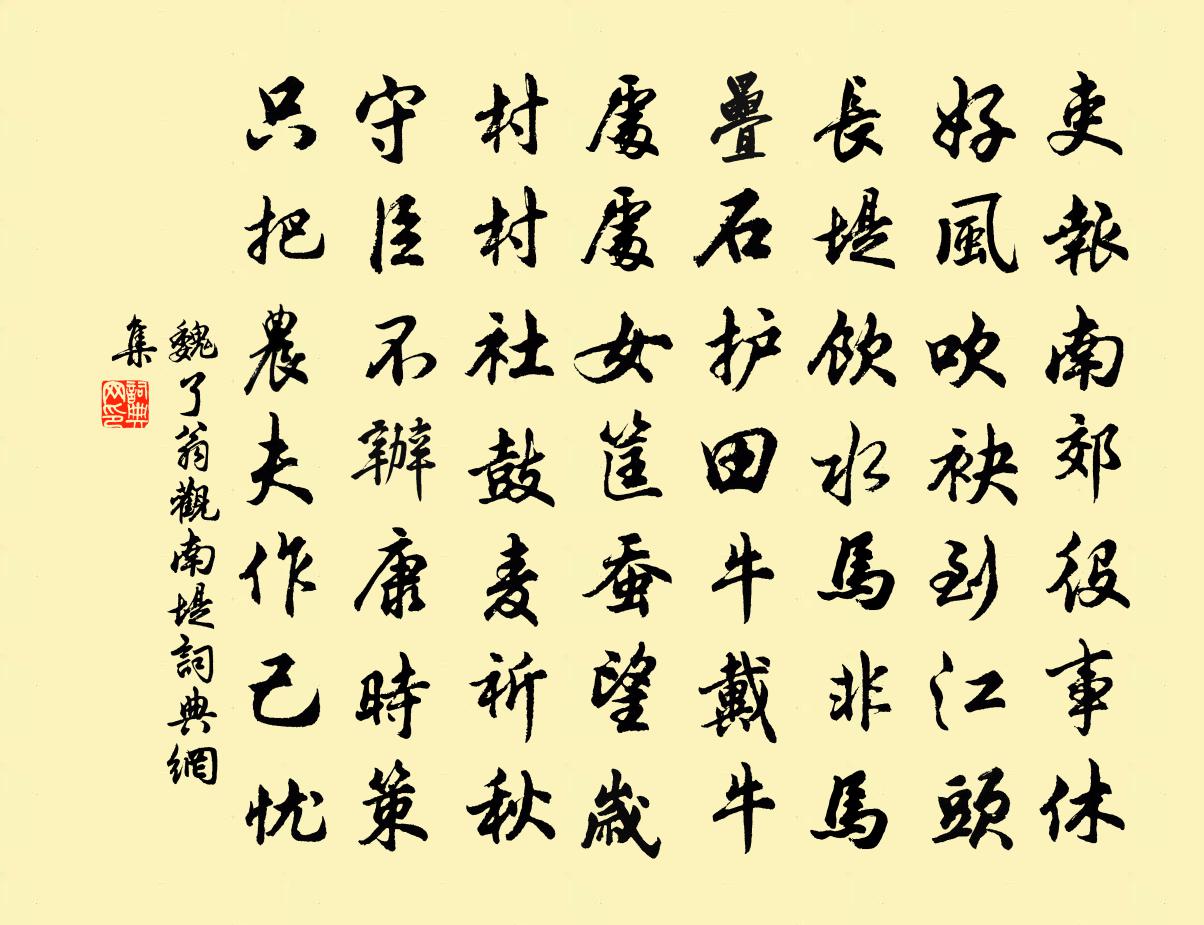 吏報南郊役事休
好風吹袂到江頭
長堤飲水馬非馬
疊石护田牛戴牛
處處女筐蚕望歲
村村社鼓麦祈秋
守臣不辦康時策
只把農夫作己忧
魏了翁觀南堤詞典網
集
詞典网印